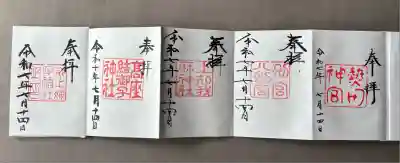 奉拝
熱田神宮
令和七年七月十四日
奉拝
令和七年七月十四日
奉拝
令和七年七月十四日
奉拝
高座結御子神社
令和七年七月十四日
奉拝
令和七年七月十四日